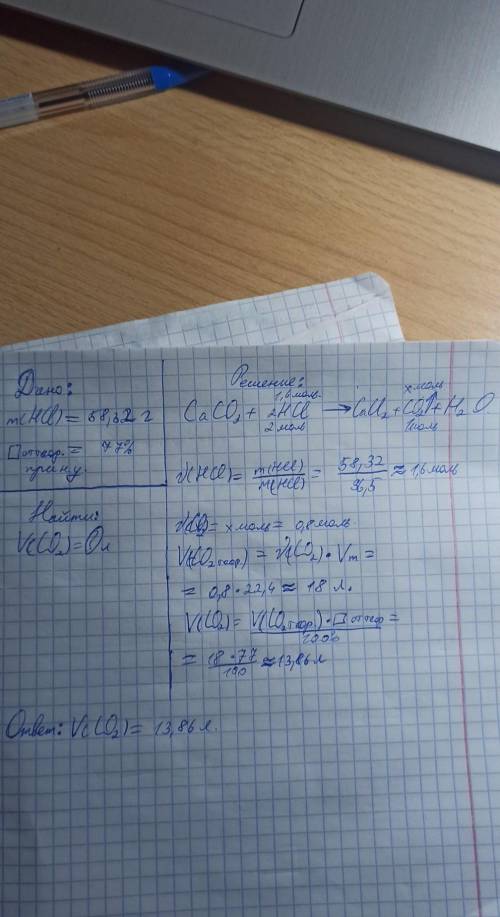 Дано:
m(HCl) = 58,32 г
η от теор. = 77%
Найти:
V(CO₂) = ? л
Решение:
1,6 моль х моль
CaCO₃ + 2HCl → CaCl₂ + CO₂↑ + H₂O
2 моль 1 моль
ν(HCl) = m(HCl)/M(HCl) = 58,32/36,5 ≈ 1,6 моль
ν(CO₂) = х моль = 0,8 моль
V(CO₂ теор.) = ν(CO₂) · Vm =
= 0,8 · 22,4 ≈ 18 л.
V(CO₂) = V(CO₂ теор.) · η от теор/100% =
= 18 · 77/100 ≈ 13,86 л
Ответ: V(CO₂) = 13,86 л.